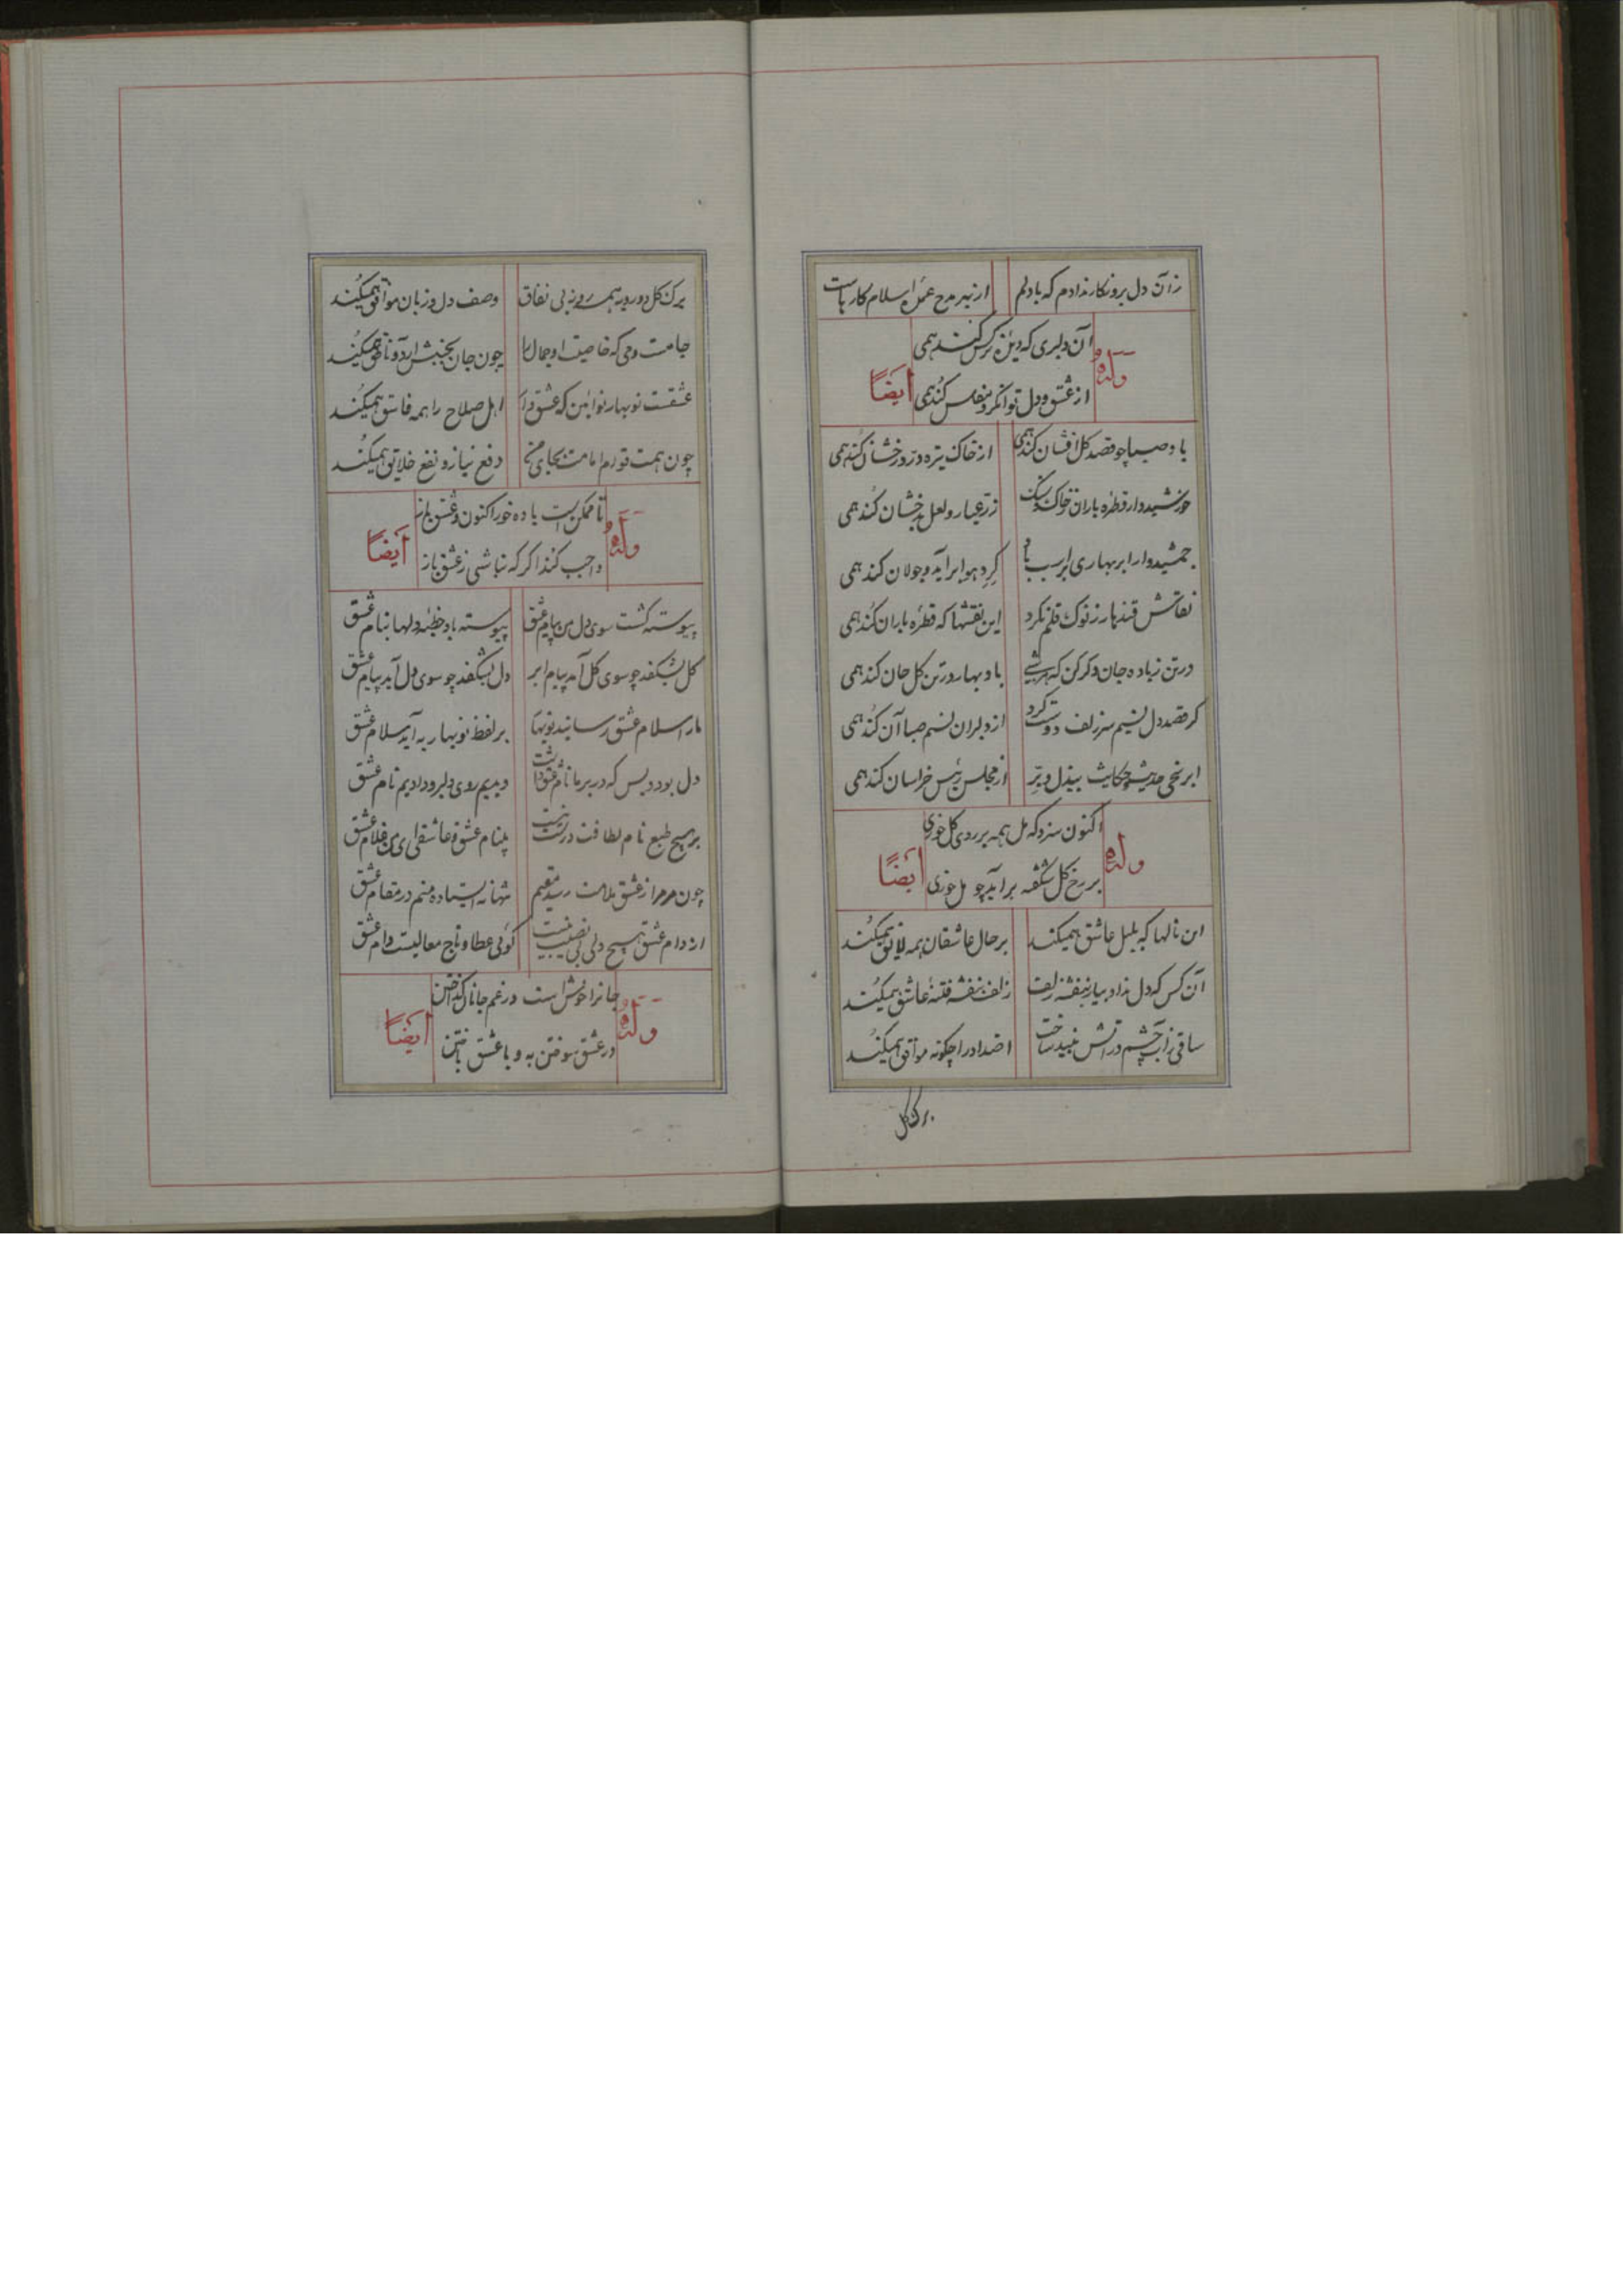 زآن دل بروزکار ندادم که بادلم از بهر مدح عمدهٔ اسلام کارهاست
وله آن دلبری که دین نرکس کند همی
از عشق و دل توانکر و مفلس کند همی ایضاً
باد صبا چو قصد کل افشان کند همی از خاک تیره درّ درخشان کند همی
خورشیدوار قطره باران ز خاک و سنک زرّ عیار و لعل بدخشان کند همی
جمشیدوار ابر بهاری بر اسب باد کرد هوا برآید و جولان کند همی
نقاش قندهار ز نوک قلم نکرد این نقشها که قطره باران کند همی
در تن ز باده جان دکر کن که هر شبی باد بهار در تن کل جان کند همی
کر قصد دل نسیم سر زلف دوست کرد از دلبران نسیم صبا آن کند همی
ابر سخی حدیث و حکایت ببذل و برّ از مجلس رئیس خراسان کند همی
وله اکنون سزد که مل همه بر روی کل خوری
بر رخ کل شکفته برآید چو مل خوری ایضاً
این نالها که بلبل عاشق همیکند بر حال عاشقان همه لایق همیکند
آن کس که دل نداد بیار بنفشه زلف زلف بنفشه فتنهٔ عاشق همیکند
ساقی ز آب چشم در آتش نبید ساخت اضداد را چکونه موافق همیکند
برک کل
برک کل دورویه همی روز بی نفاق وصف دل و زبان موافق همیکند
جامست و می که خاصیت او جمال را چون جان بجنبش ارد و ناطق همیکند
عشقست نوبهار نوآئین که عشق او اهل صلاح را همه فاسق همیکند
چون همت قوام امامت بجای من دفع نیاز و نفع خلایق همیکند
وله تا ممکن است باده خور اکنون و عشق باز
واجب کند اکر که نباشی ز عشق باز ایضاً
پیوسته کشت سوی دل من پیام عشق پیوسته باد خطبهٔ دلها بنام عشق
کل بشکفد چو سوی کل آمد پیام ابر دل بشکفد چو سوی دل آید پیام عشق
ما را سلام عشق رسانید نوبهار بر لفظ نوبهار به آید سلام عشق
دل بود و بس که در بر ما نام عشق داشت دیدیم روی دلبر و دادیم نام عشق
بر هیچ طبع نام لطافت درست نیست بینام عشق و عاشقی ای من غلام عشق
چون مر مرا ز عشق ملامت رسد مقیم تنها نه ایستاده منم در مقام عشق
از دام عشق هیچ دلی بی نصیب نیست کوئی عطا و تاج معالیست دام عشق
وله جانرا خوش است در غم جانان کداختن
در عشق سوختن به و با عشق باختن ایضاً